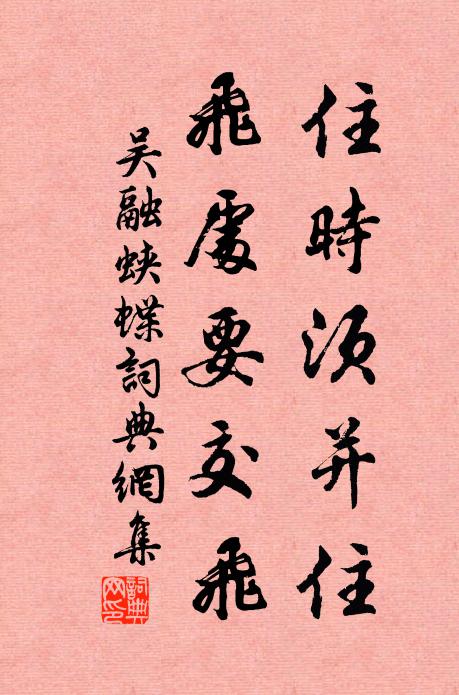 住時須并住
飛處要交飛
吳融蛺蝶詞典網集
詞典网印